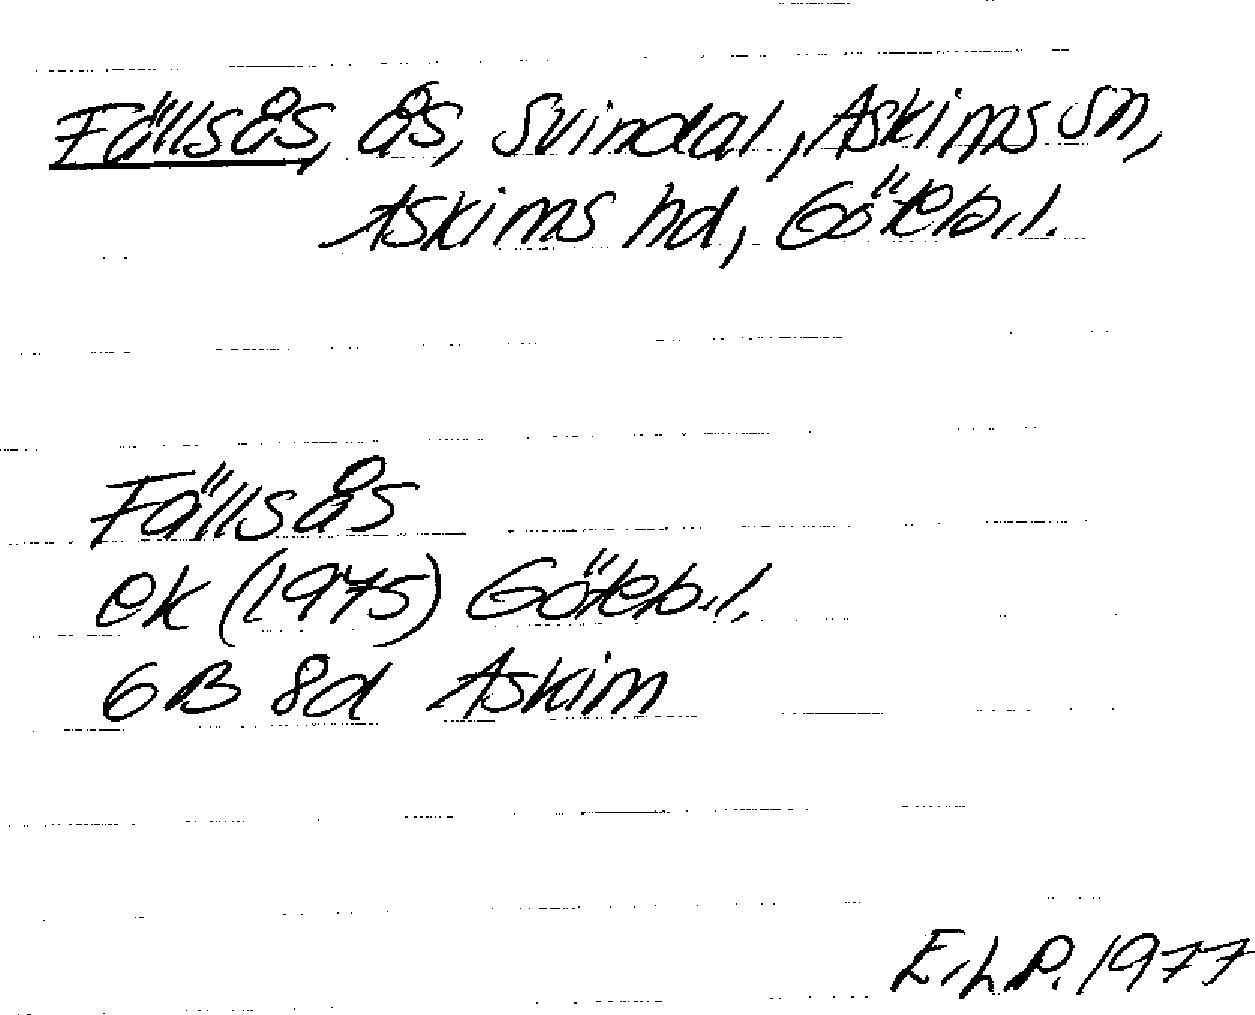 Fällsås, ås, Svindal, Askims sn,
Askims hd, Göteb.l.
Fällsås
ek (1975) Göteb.l.
6B 8d Askim
E.h.P. 1977